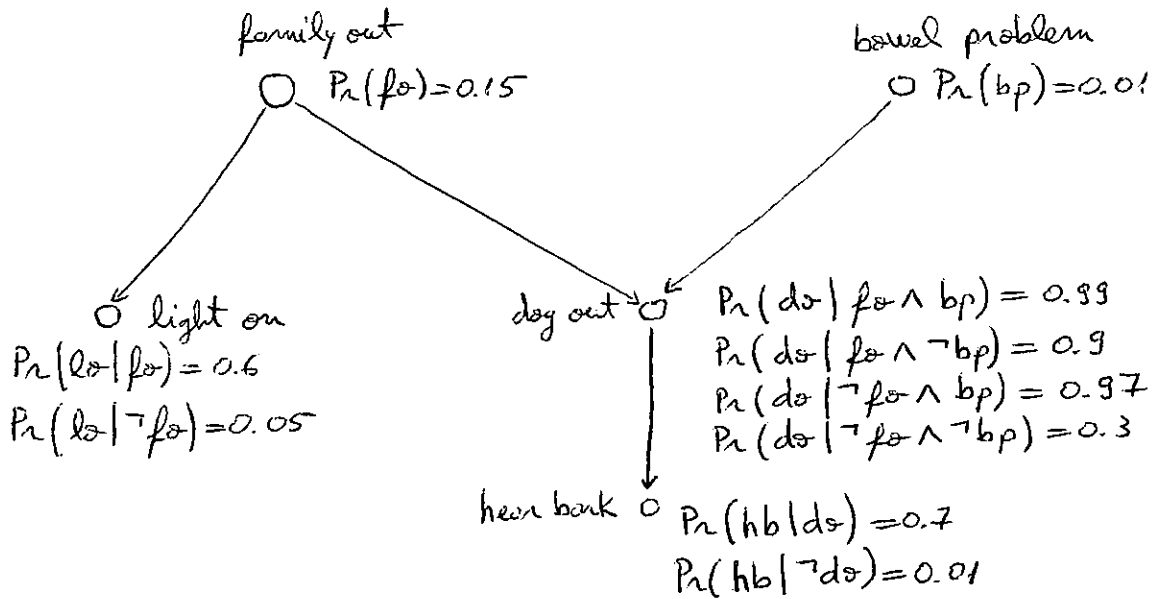 family out
bowel problem
Pr(fo)=0.15
Pr(bp)=0.01
light on
Pr(lo|fo)=0.6
Pr(lo|¬fo)=0.05
dog out
Pr(do|fo∧bp)=0.99
Pr(do|fo∧¬bp)=0.9
Pr(do|¬fo∧bp)=0.97
Pr(do|¬fo∧¬bp)=0.3
hear bark
Pr(hb|do)=0.7
Pr(hb|¬do)=0.01